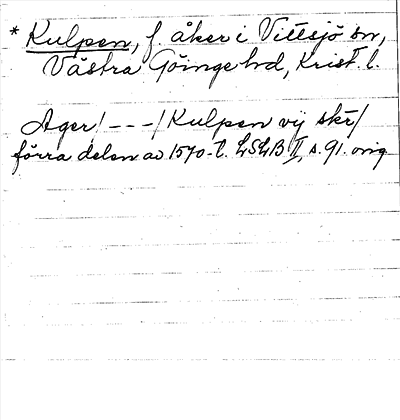 * Kulpen, f. åker i Vittsjö sn,
Västra Göinge hd, Krist. l.
Ager / - - - / Kulpen vij skr /
förra delen av 1570-t. LSLB II, s. 91. orig